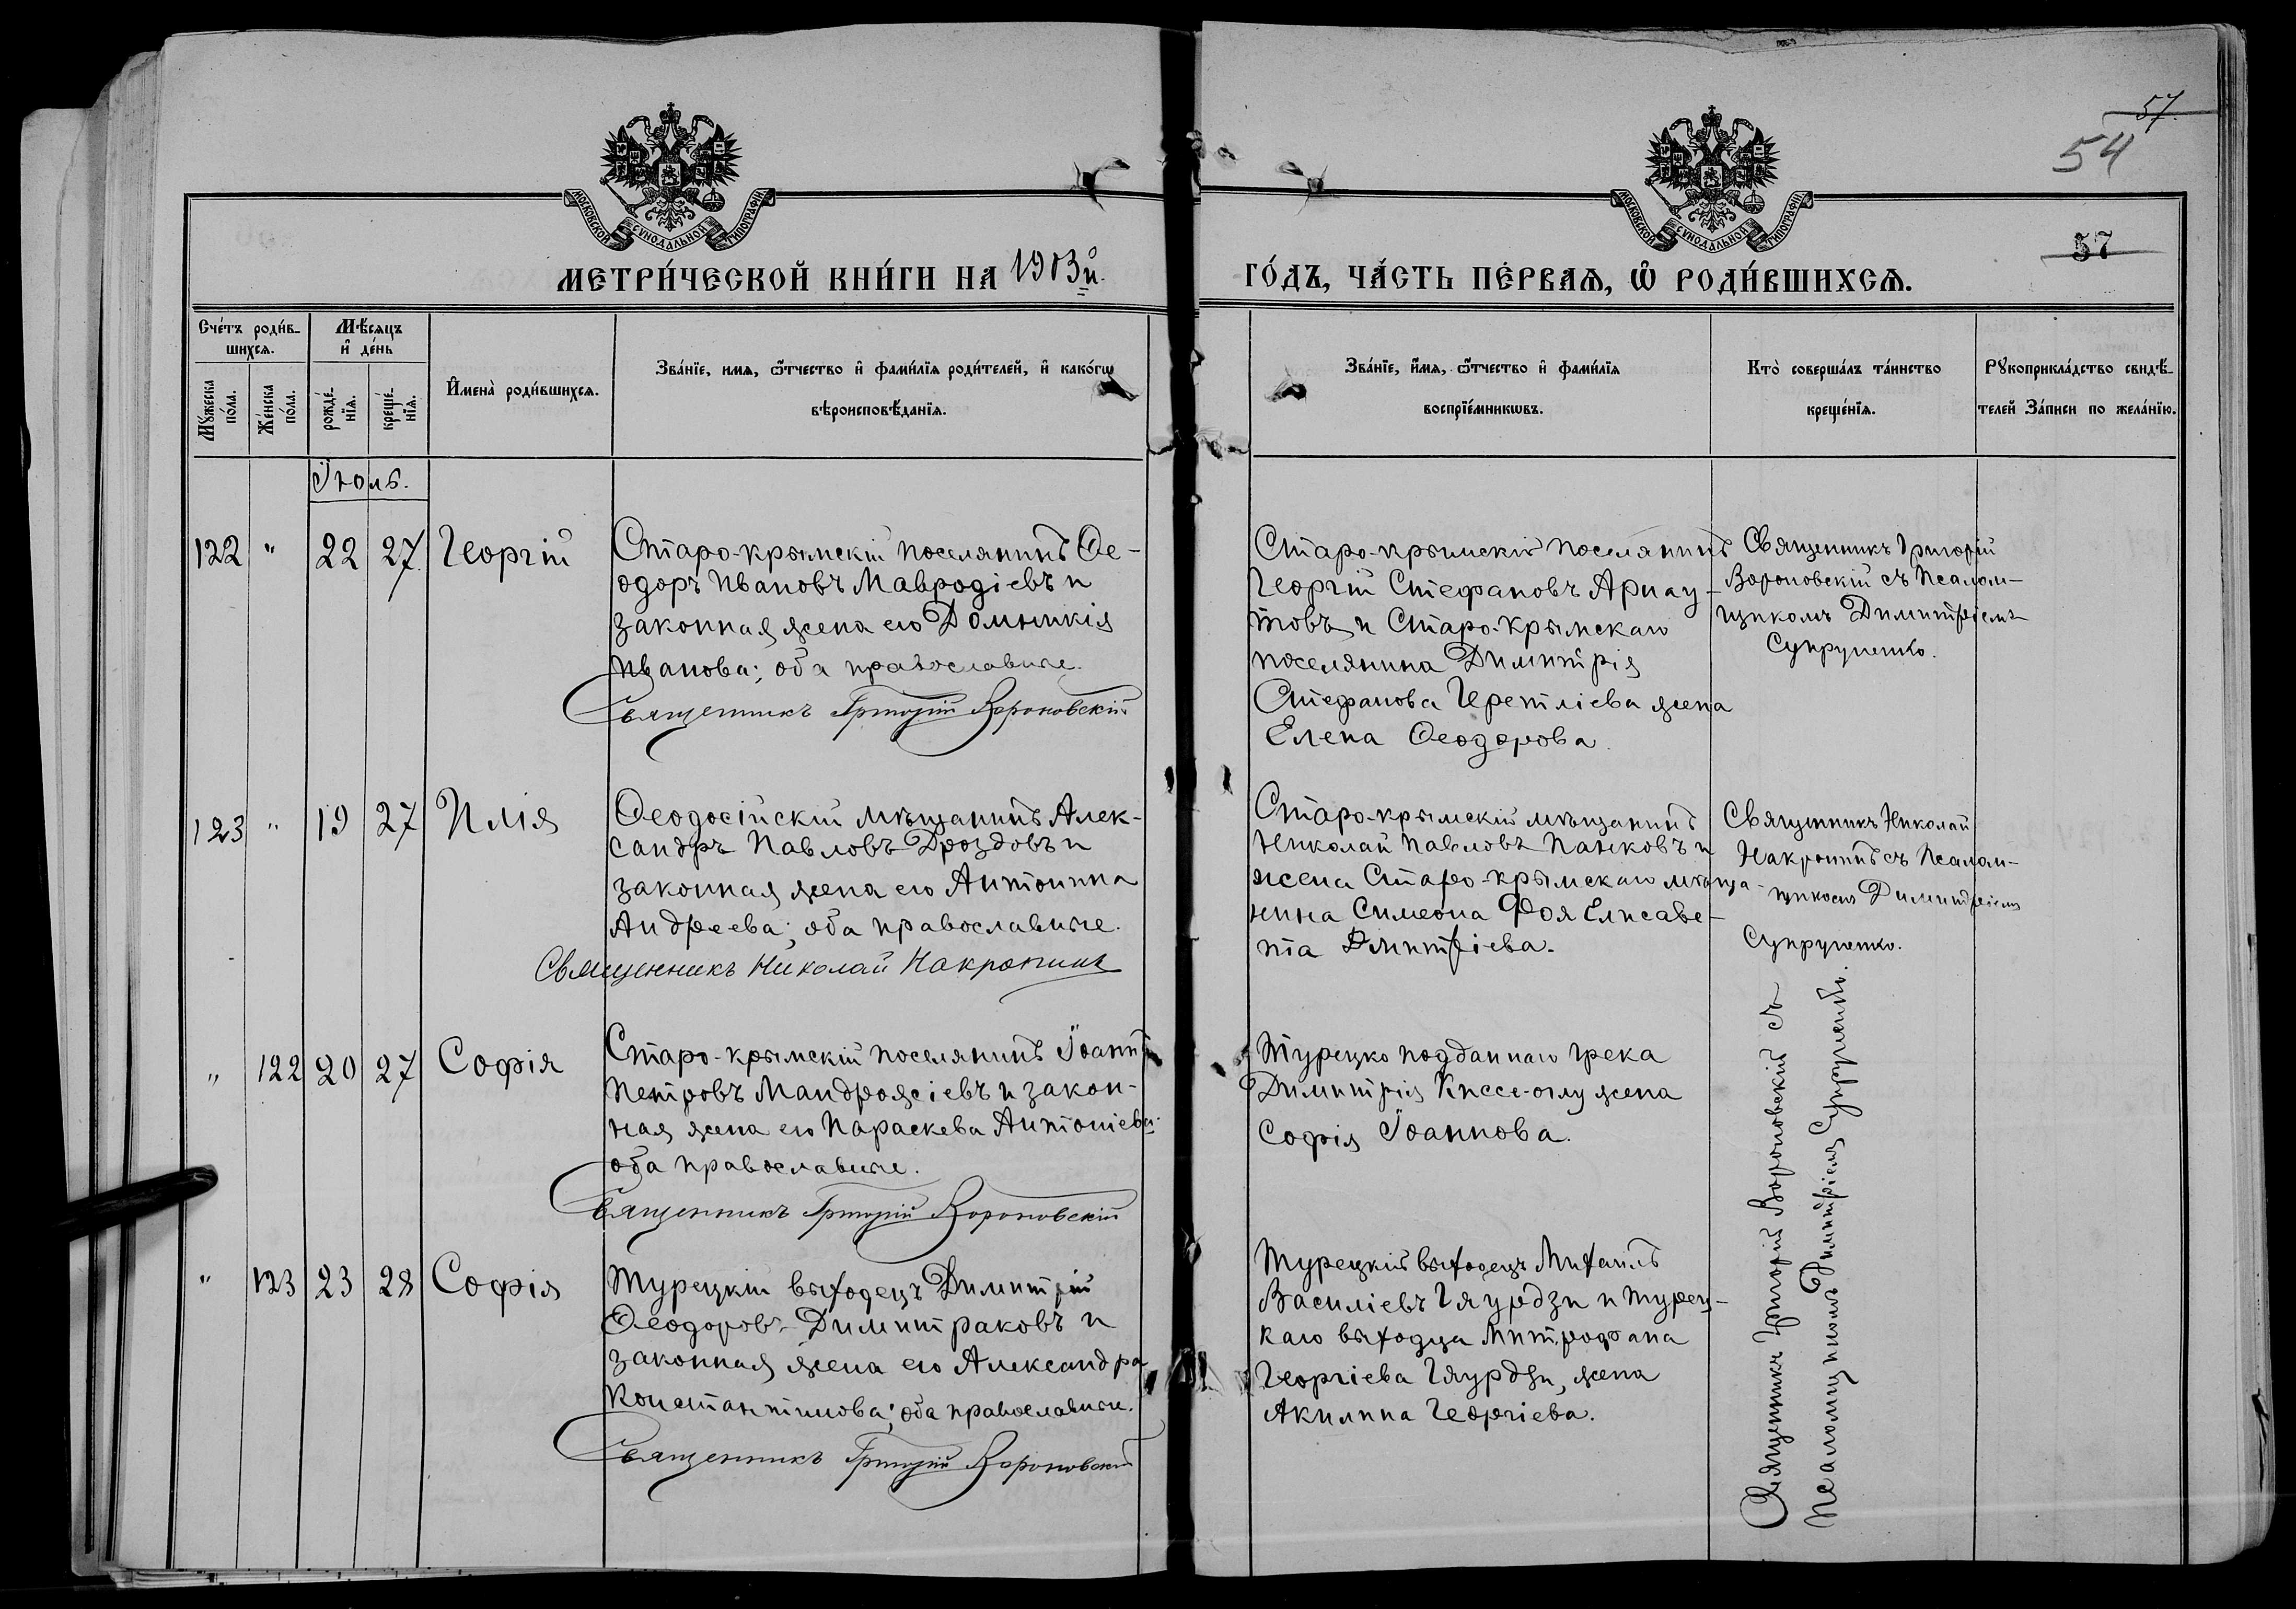 57.
54
57
МОСКОВСКОЙ СѴНОДАЛЬНОЙ ТИПОГРАФІИ
МОСКОВСКОЙ СѴНОДАЛЬНОЙ ТИПОГРАФІИ
МЕТРИ́ЧЕСКОЙ КНИ́ГИ НА 1903й.
ГО́ДЪ, ЧА́СТЬ ПЕ́РВАѦ, Ѽ РОДИ́ВШИХСѦ.
Сче́тъ роди́в-
шихсѧ.
Мꙋ́жеска по́ла.
Же́нска по́ла.
Мѣ́сѧцъ
и҆ де́нь
рожде́-
нїѧ.
креще́-
нїѧ.
И҆мена̀ роди́вшихсѧ.
Зва́нїе, имѧ, ѻ҆́тчество и҆ фами́лїѧ роди́телей, и҆ како́гѡ
вѣроисповѣ́данїѧ.
Зва́нїе, и҆́мѧ, ѻ҆́тчество и҆ фами́лїѧ
воспрїе́мникѡвъ.
Кто̀ соверша́лъ та́инство
креще́нїѧ.
Рꙋкоприкла́дство свидѣ́-
телей За́писи по жела́нїю.
Іюль.
122 " 22 27 Георгій
Старо-крымскій поселянинъ Ѳе-
одоръ Ивановъ Мавродіевъ и
законная жена его Домникія
Иванова; оба православные.
Священникъ Григорій Вороновскій
Старо-крымскій поселянинъ
Георгій Стефановъ Арнау-
товъ и Старо-крымскаго
поселянина Димитрія
Стефанова Черетліева жена
Елена Ѳеодорова.
Священникъ Григорій
Вороновскій съ Псалом-
щикомъ Димитріемъ
Супруненко.
123 " 19 27 Илія
Ѳеодосійскій мѣщанинъ Алек-
сандръ Павловъ Дроздовъ и
законная жена его Антонина
Андреева; оба православные.
Священникъ Николай Накропинъ
Старо-крымскій мѣщанинъ
Николай Павловъ Панковъ и
жена Старо-крымскаго мѣща-
нина Симеона Фоя Елисаве-
та Дмитріева.
Священникъ Николай
Накропинъ съ Псалом-
щикомъ Димитріемъ
Супруненко.
" 122 20 27 Софія
Старо-крымскій поселянинъ Іоаннъ
Петровъ Мандражіевъ и закон-
ная жена его Параскева Антоніева;
оба православные.
Священникъ Григорій Вороновскій
Турецко подданнаго грека
Димитрія Киссе-оглу жена
Софія Іоаннова.
" 123 23 28 Софія
Турецкій выходецъ Димитрій
Ѳеодоровъ Димитраковъ и
законная жена его Александра
Константинова; оба православные.
Священникъ Григорій Вороновскій
Турецкій выходецъ Михаилъ
Василіевъ Гяурдзи и турец-
каго выходца Митрофана
Георгіева Гяурдзи, жена
Акилина Георгіева.
Священникъ Григорій Вороновскій съ
Псаломщикомъ Димитріемъ Супруненко.